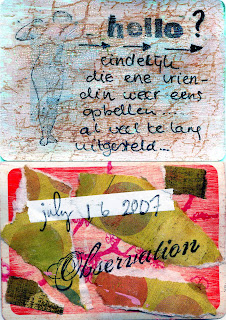 hello?
eindelijk
die ene vrien-
din weer eens
opbellen...
al veel te lang
uitgesteld...
july 16 2007
Observation